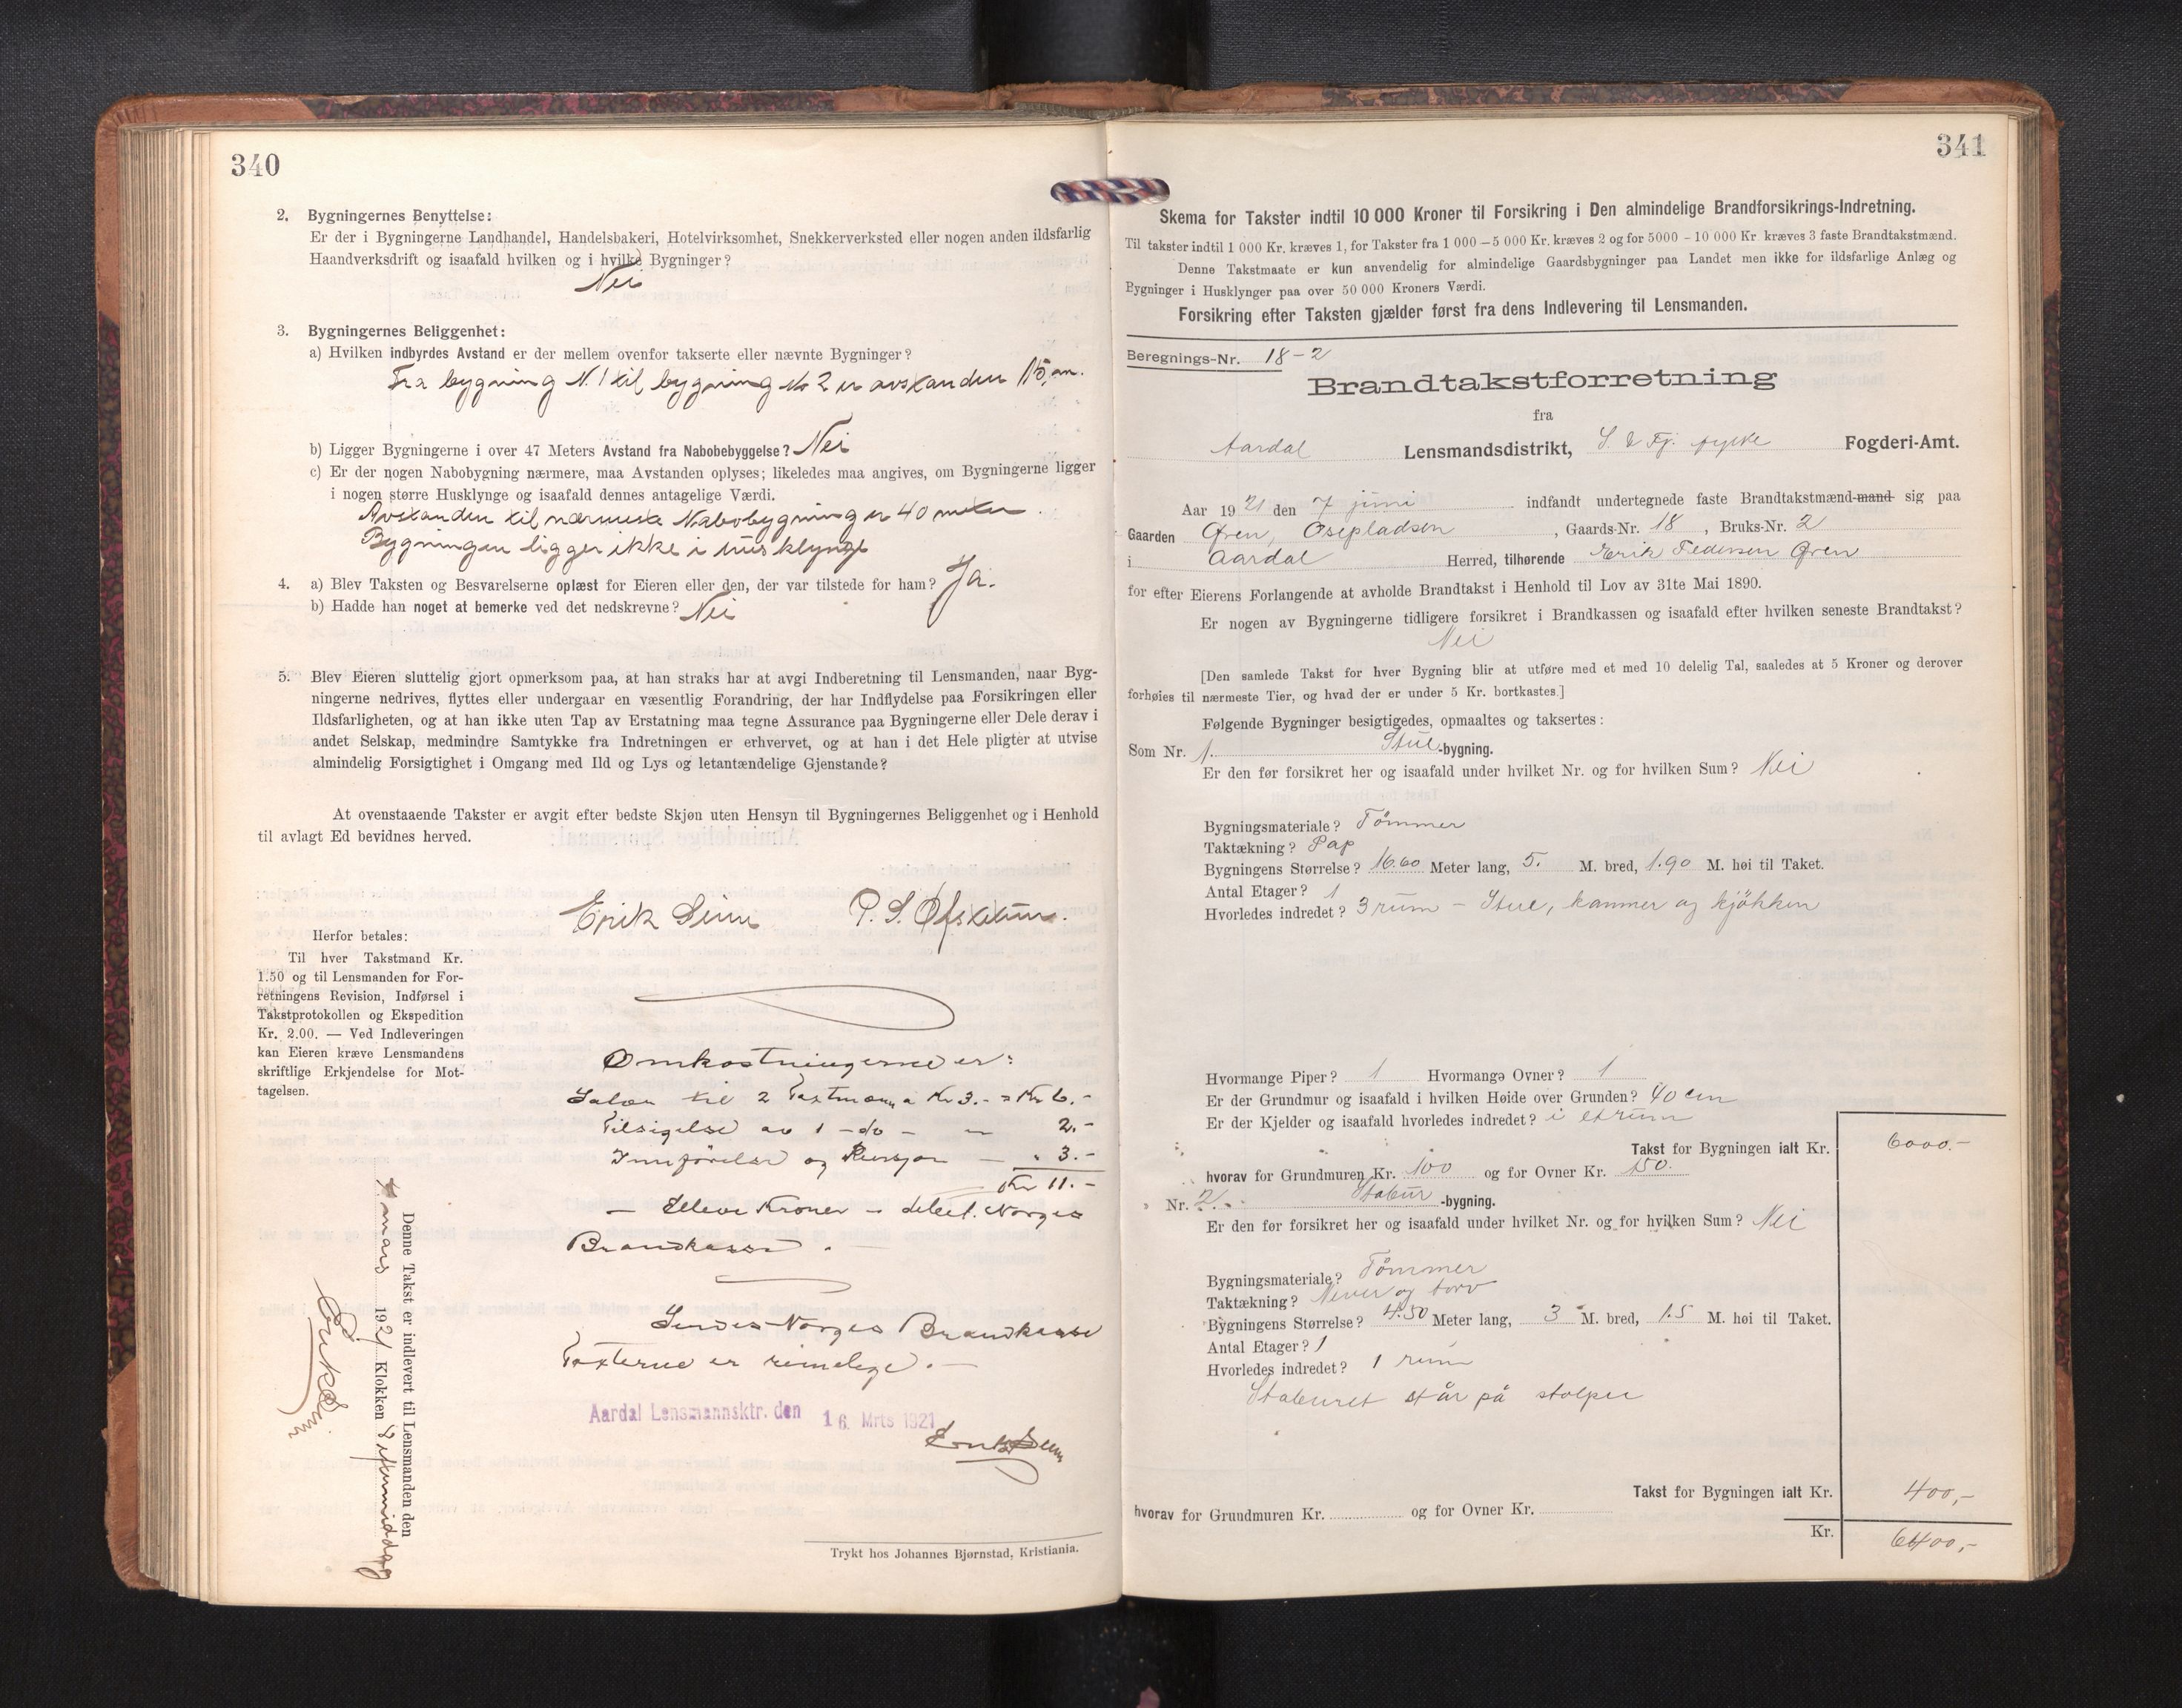 340
2. Bygningernes Benyttelse:
Er der i Bygningerne Landhandel, Handelsbakeri, Hotelvirksomhet, Snekkerverksted eller nogen anden ildsfarlig
Haandverksdrift og isaafald hvilken og i hvilke Bygninger?
Nei
3. Bygningernes Beliggenhet:
a) Hvilken indbyrdes Avstand er der mellem ovenfor takserte eller nævnte Bygninger?
Fra bygning N. 1 til bygning No 2 er avstanden 115 m.
b) Ligger Bygningerne i over 47 Meters Avstand fra Nabobebyggelse? Nei
c) Er der nogen Nabobygning nærmere, maa Avstanden oplyses; likeledes maa angives, om Bygningerne ligger
i nogen større Husklynge og isaafald dennes antagelige Værdi.
Avstanden til nærmeste Nabobygning er 40 meter.
Bygningen ligger ikke i husklynge
4. a) Blev Taksten og Besvarelserne oplæst for Eieren eller den, der var tilstede for ham? Ja.
b) Hadde han noget at bemerke ved det nedskrevne? Nei
5. Blev Eieren sluttelig gjort opmerksom paa, at han straks har at avgi Indberetning til Lensmanden, naar Byg-
ningerne nedrives, flyttes eller undergaar en væsentlig Forandring, der har Indflydelse paa Forsikringen eller
Ildsfarligheten, og at han ikke uten Tap av Erstatning maa tegne Assurance paa Bygningerne eller Dele derav i
andet Selskap, medmindre Samtykke fra Indretningen er erhvervet, og at han i det Hele pligter at utvise
almindelig Forsigtighet i Omgang med Ild og Lys og letantændelige Gjenstande?
At ovenstaaende Takster er avgit efter bedste Skjøn uten Hensyn til Bygningernes Beliggenhet og i Henhold
til avlagt Ed bevidnes herved.
Erik Seim P. S. Øfstetun.
Herfor betales:
Til hver Takstmand Kr.
1.50 og til Lensmanden for For-
retningens Revision, Indførsel i
Takstprotokollen og Ekspedition
Kr. 2.00. — Ved Indleveringen
kan Eieren kræve Lensmandens
skriftlige Erkjendelse for Mot-
tagelsen.
Omkostningerne er:
til 2 Taxtmænn a Kr 3.- = Kr 6.-
Tilsigelse av 1 -do- 2.-
Innførelse og - " 3.-
Kr 11.-
- Elleve Kroner - debet. Norges
Brandkasse.
Sendes Norges Brandkasse
Taxterne er rimelige.-
Aardal Lensmannsktr. den 16 Mrts 1921
Erik Seim
Denne Takst er indlevert til Lensmanden den
mars 1921 Klokken 8 eftermiddag
Erik Seim
Trykt hos Johannes Bjørnstad, Kristiania.
341
Skema for Takster indtil 10 000 Kroner til Forsikring i Den almindelige Brandforsikrings-Indretning.
Til takster indtil 1 000 Kr. kræves 1, for Takster fra 1 000 – 5 000 Kr. kræves 2 og for 5000 – 10 000 Kr kræves 3 faste Brandtakstmænd.
Denne Takstmaate er kun anvendelig for almindelige Gaardsbygninger paa Landet men ikke for ildsfarlige Anlæg og
Bygninger i Husklynger paa over 50 000 Kroners Værdi.
Forsikring efter Taksten gjælder først fra dens Indlevering til Lensmanden.
Beregnings-Nr. 18-2
Brandtakstforretning
fra
Aardal Lensmandsdistrikt, S. & Fj. fylke Fogderi-Amt.
Aar 1921 den 7 juni indfandt undertegnede faste Brandtakstmænd-mand sig paa
Gaarden Øren, Osepladsen, Gaards-Nr. 18, Bruks-Nr. 2
i Aardal Herred, tilhørende Erik Pedersen Øren
for efter Eierens Forlangende at avholde Brandtakst i Henhold til Lov av 31te Mai 1890.
Er nogen av Bygningerne tidligere forsikret i Brandkassen og isaafald efter hvilken seneste Brandtakst?
Nei
[Den samlede Takst for hver Bygning blir at utføre med et med 10 delelig Tal, saaledes at 5 Kroner og derover
forhøies til nærmeste Tier, og hvad der er under 5 Kr. bortkastes.]
Følgende Bygninger besigtigedes, opmaaltes og taksertes:
Som Nr. 1. Stue-bygning.
Er den før forsikret her og isaafald under hvilket Nr. og for hvilken Sum? Nei
Bygningsmateriale? Tömmer
Taktækning? Pap
Bygningens Størrelse? 16.60 Meter lang, 5. M. bred, 1.90 M. høi til Taket.
Antal Etager? 1
Hvorledes indredet? 3 rum - Stue, kammer og kjökken
Hvormange Piper? 1 Hvormange Ovner? 1
Er der Grundmur og isaafald i hvilken Høide over Grunden? 40 cm
Er der Kjelder og isaafald hvorledes indredet? i et rum
Takst for Bygningen ialt Kr. 6000.-
hvorav for Grundmuren Kr. 100 og for Ovner Kr. 150.
Nr. 2. Stabur-bygning.
Er den før forsikret her og isaafald under hvilket Nr. og for hvilken Sum? Nei
Bygningsmateriale? Tömmer
Taktækning? Never og torv
Bygningens Størrelse? 4.50 Meter lang, 3 M. bred, 1.5 M. høi til Taket.
Antal Etager? 1
Hvorledes indredet? 1 rum
Staburet står på stolper
Takst for Bygningen ialt Kr. 400,-
hvorav for Grundmuren Kr. og for Ovner Kr.
Kr. 6400,-